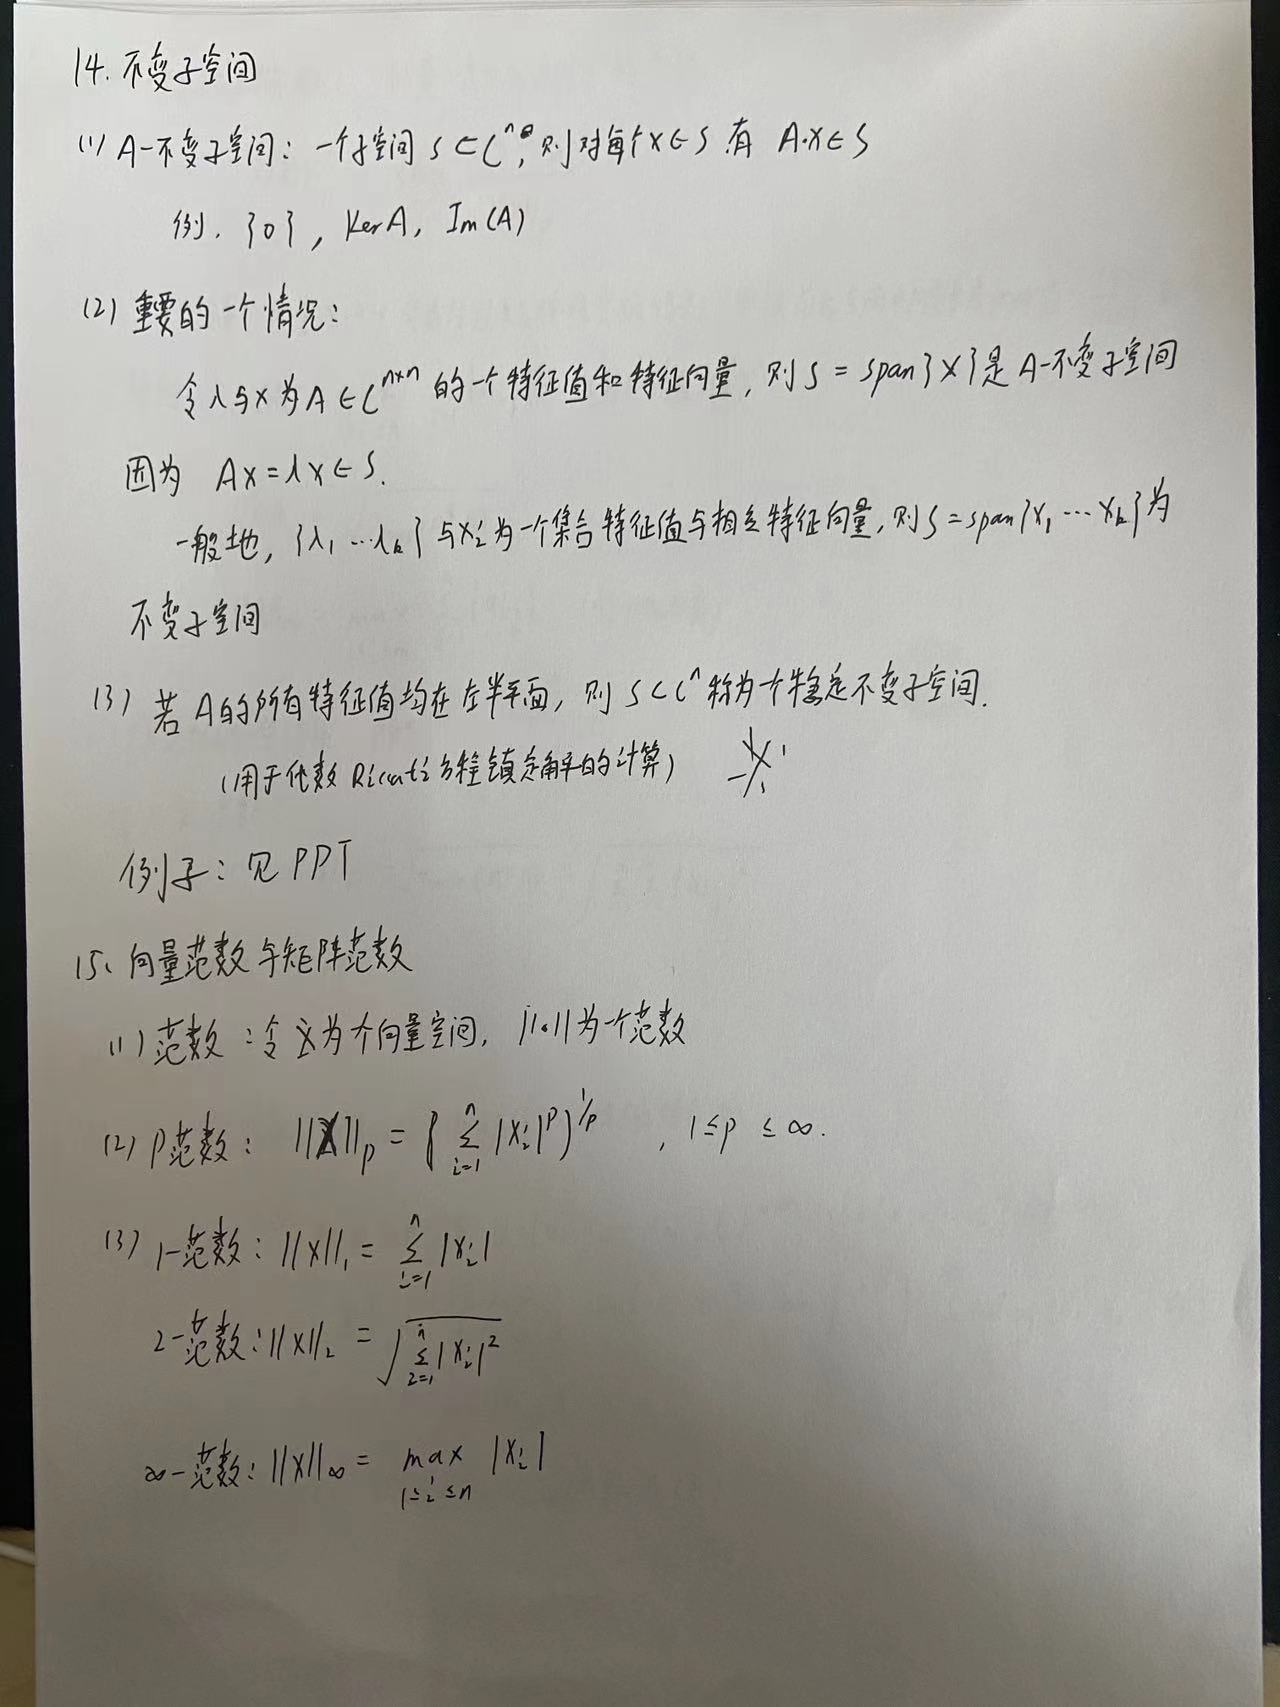 14. 不变子空间
(1) A-不变子空间: 一个子空间 S⊂Cⁿ, 则对每个x∈S 有 A·x∈S
例. {0}, KerA, Im(A)
(2) 重要的一个情况:
令λ与x为A∈Cⁿˣⁿ的一个特征值和特征向量, 则S=span{x}是A-不变子空间
因为 Ax=λx∈S.
一般地, {λ₁…λₖ}与xᵢ为一个集合特征值与相应特征向量, 则S=span{x₁…xₖ}为
不变子空间
(3) 若A的所有特征值均在左半平面, 则S⊂Cⁿ称为个稳定不变子空间.
(用于代数Riccati方程镇定解的计算)
例子: 见PPT
15. 向量范数与矩阵范数
(1) 范数: 令X为个向量空间, ||·||为一个范数
(2) P范数: ||X||ₚ = {∑ᵢ₌₁ⁿ |xᵢ|ᵖ}^(1/p), 1≤p≤∞.
(3) 1-范数: ||x||₁ = ∑ᵢ₌₁ⁿ |xᵢ|
2-范数: ||x||₂ = √(∑ᵢ₌₁ⁿ |xᵢ|²)
∞-范数: ||x||∞ = max 1≤i≤n |xᵢ|